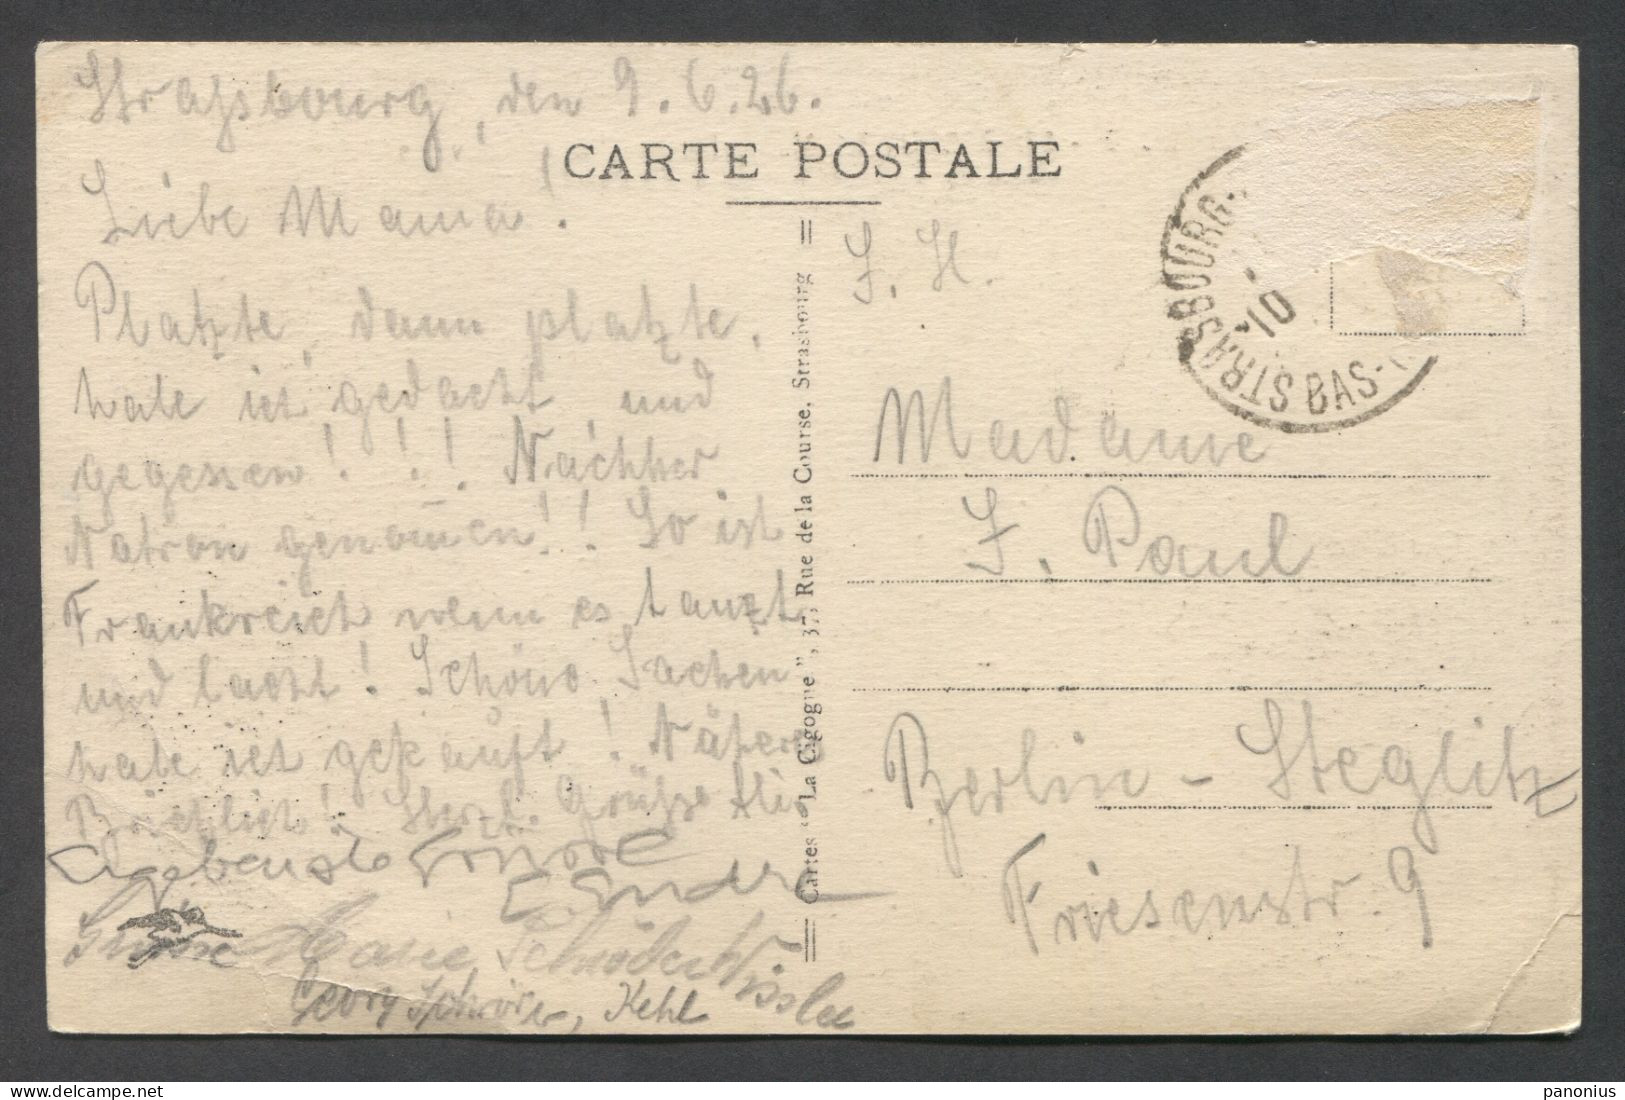 Straßbourg, den 9.6.26.
Liebe Mama!
Platzte, dann platzte,
habe ich gedacht, und
gegessen!!! Nachher
Natron genom̅en!! So ist
Frankreich wenn es tanzt
und lacht! Schöne Sachen
habe ich gekauft! Nähere
Herzl. Grüße
Marie Schröder
Georg Schröder, Kehl
CARTE POSTALE
Cartes "La Cigogne", 37, Rue de la Course, Strasbourg
STRASBOURG
BAS-
10
Madame
F. Paul
Berlin - Steglitz
Friesenstr. 9
panonius